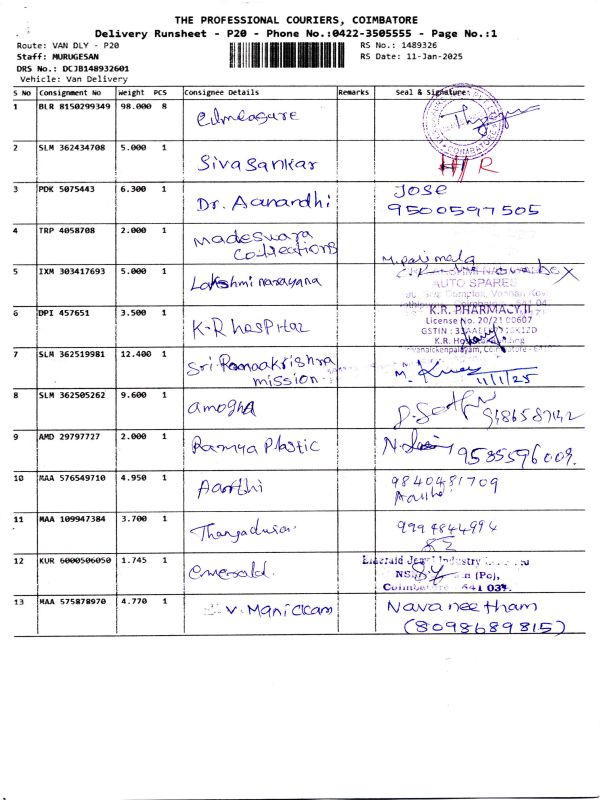 THE PROFESSIONAL COURIERS, COIMBATORE
Delivery Runsheet - P20 - Phone No.:0422-3505555 - Page No.:1
Route: VAN DLY - P20
RS No.: 1489326
Staff: MURUGESAN
RS Date: 11-Jan-2025
DRS No.: DCJB148932601
Vehicle: Van Delivery
S No Consignment No Weight PCS Consignee Details Remarks Seal & Signature
1 BLR 8150299349 98.000 8
COIMBATORE
2 SLM 362434708 5.000 1 Sivasankar
3 PDK 5075443 6.300 1 Dr. Aanandhi JOSE
9500597505
4 TRP 4058708 2.000 1 Madeswara
Collections M. parimala
5 IXM 303417693 5.000 1 Lakshmi narayana
AUTO SPARES
6 DPI 457651 3.500 1 K-R hospital K.R. PHARMACY II
License No. 20/21
GSTIN :
K.R.
7 SLM 362519981 12.400 1 Sri Ramaakrishna
mission M. 11/1/25
8 SLM 362505262 9.600 1 amogha 9486587142
9 AMD 29797727 2.000 1 Ramya Plastic 9535596009.
10 MAA 576549710 4.950 1 Aarthi 9840481709
11 MAA 109947384 3.700 1 Thangadurai 9994844994
12 KUR 6000506050 1.745 1 emerald. Emerald Jewel Industry
Coimbatore 641 034.
13 MAA 575878970 4.770 1 V. Manickam Navaneetham
(8098689815)